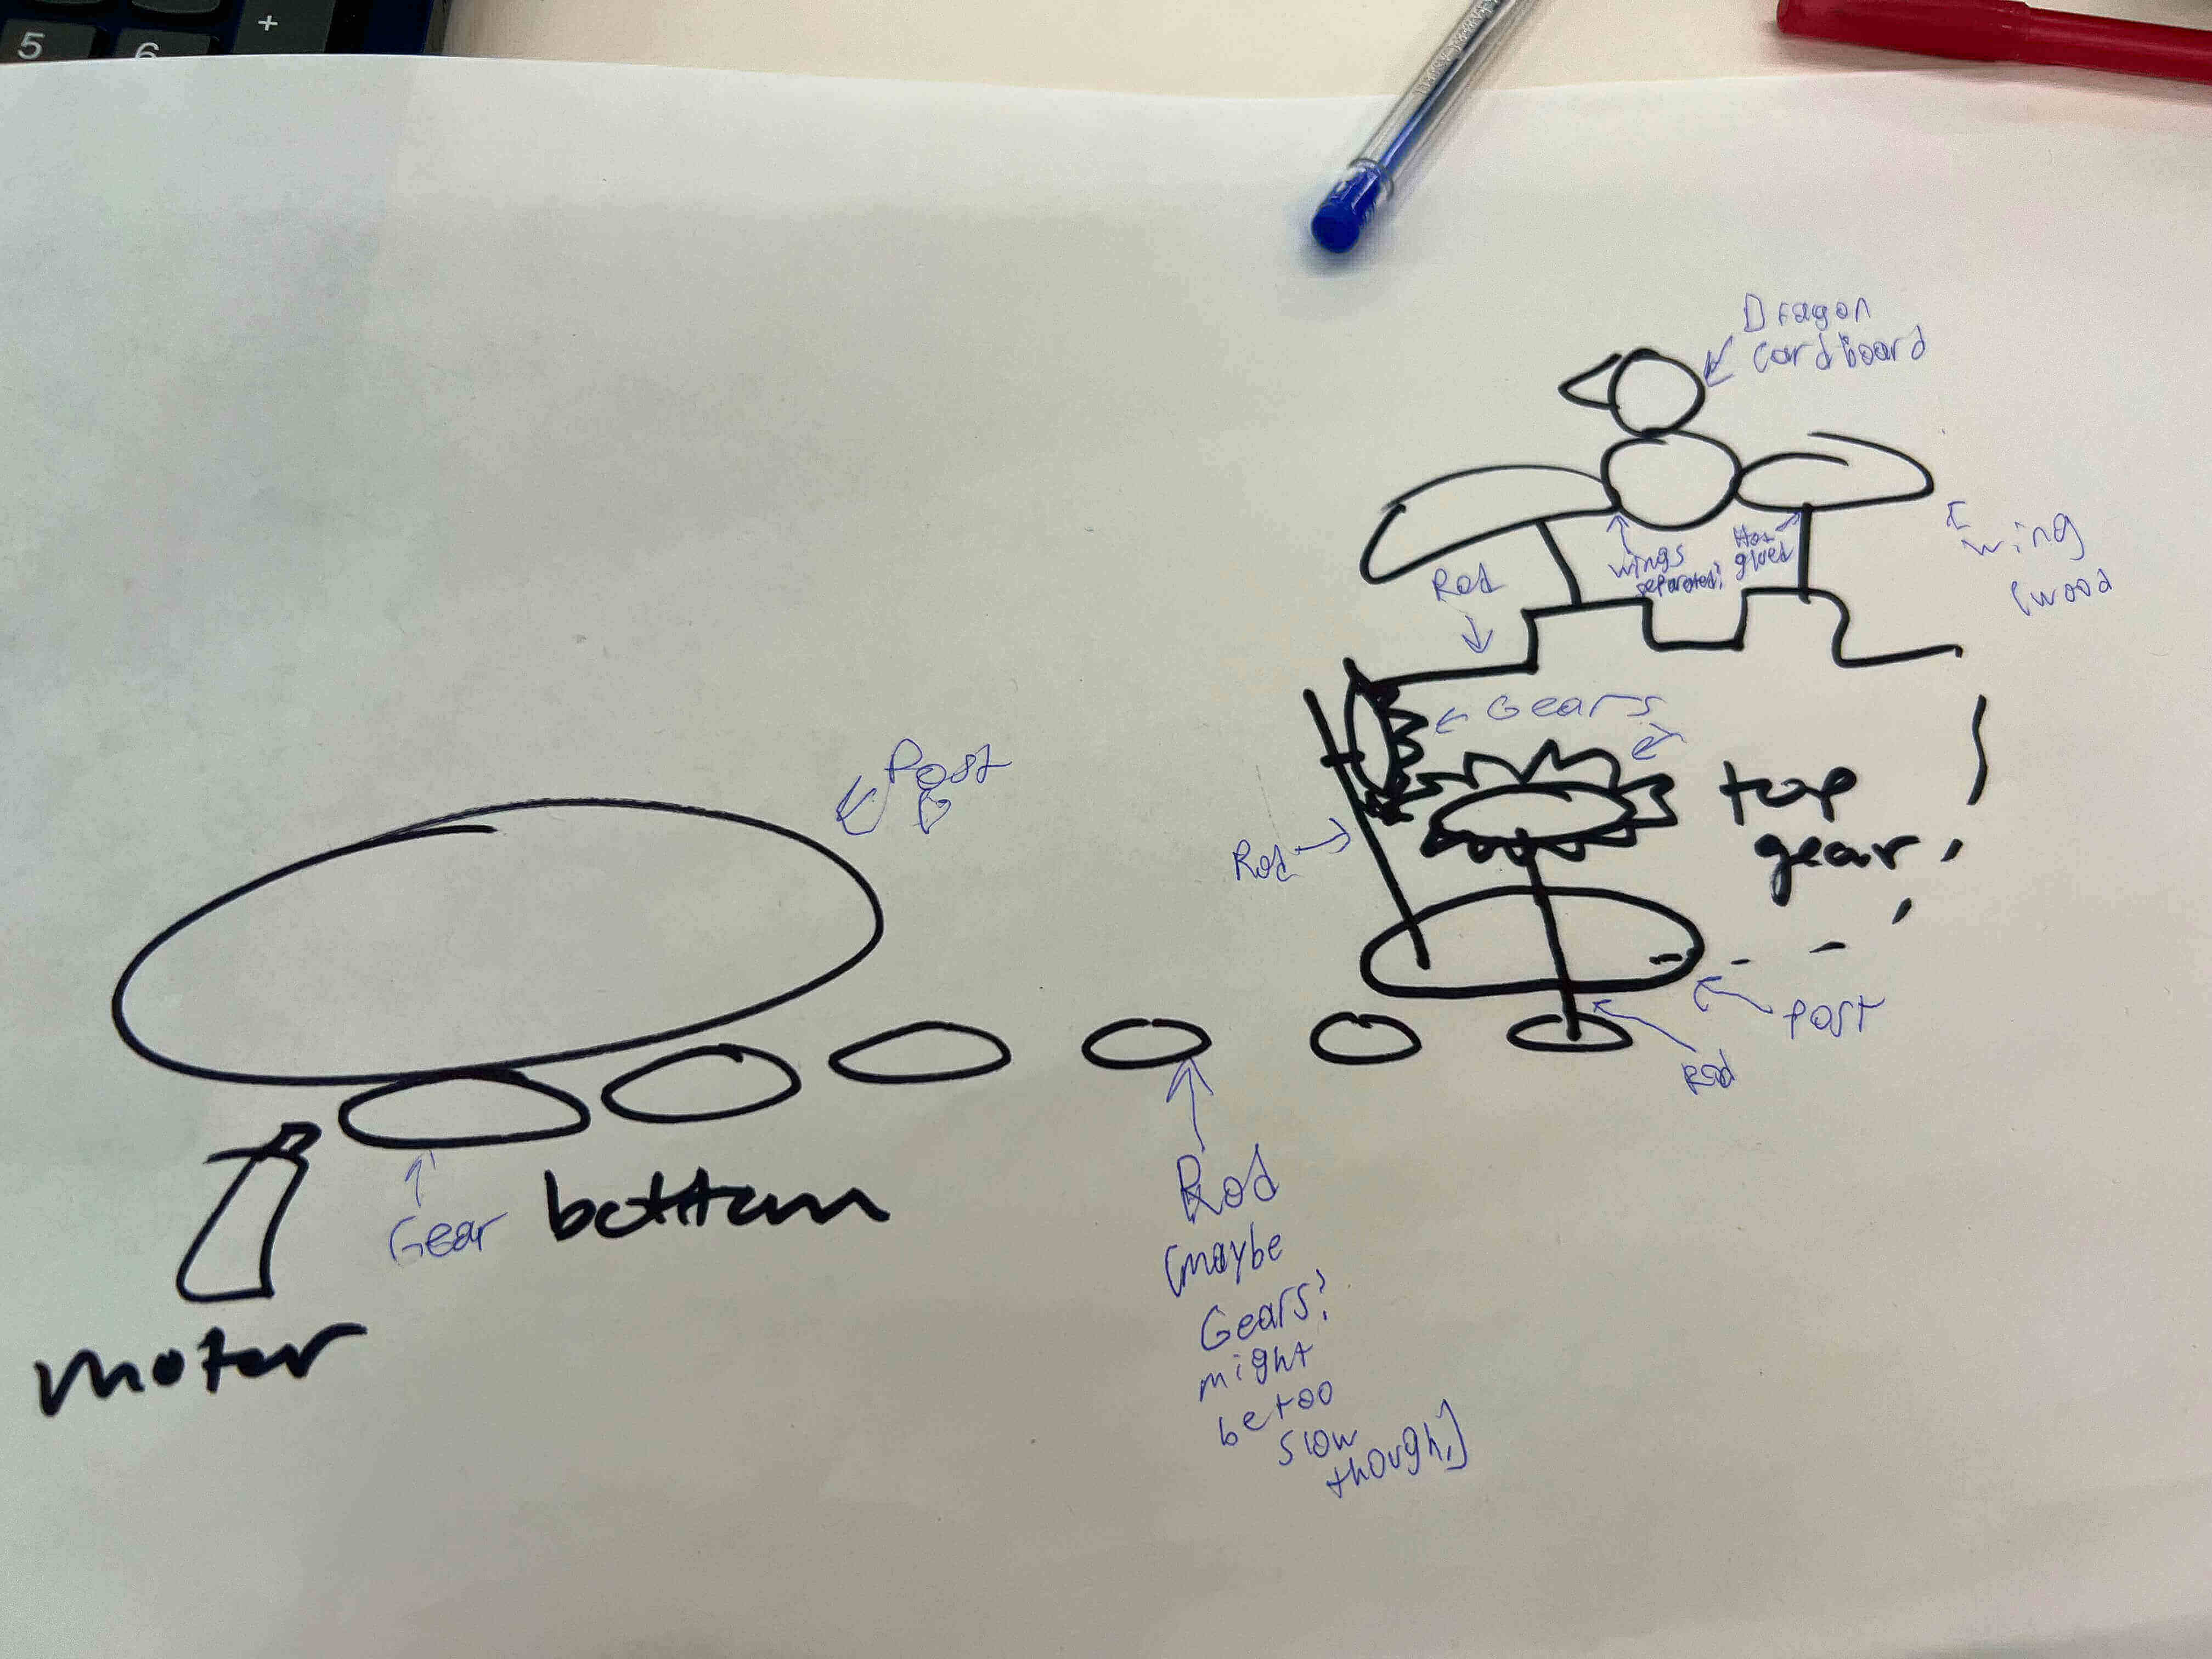 5 6 +
Dragon
cardboard
Hot
glued
wings
separated;
wing
(wood
Rod
Gears
top
gear
Post
Rod
Post
Rod
Gear
bottom
motor
Rod
(maybe
Gears?
might
be too
slow
though.)